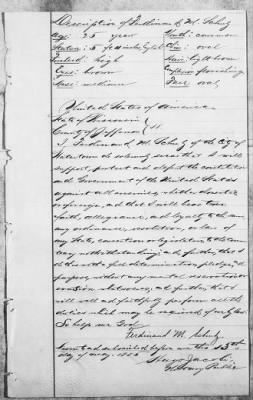 Description of Ferdinand M. Schulz
Age: 25 years Mouth: common
Stature: 5 feet inches Chin: oval
Forehead: high Hair: light brown
Eyes: brown Complexion:
Nose: medium Face: oval
United States of America
State of Wisconsin
County of Jefferson } ss.
I Ferdinand M. Schulz of the City of
Watertown do solemnly swear that I will
support, protect and defend the constitution
and Government of the United States
against all enemies, whether domestic
or foreign, and that I will bear true
faith, allegiance, and loyalty to the same,
any ordinance, resolution, or law of
any State, convention or legislature to the con-
trary notwithstanding; and further, that I
do this with a full determination, pledge, and
purpose, without any mental reservation or
evasion whatsoever; and further, that I
will well and faithfully perform all the
duties which may be required of me by law.
So help me God
Ferdinand M. Schulz
Sworn and subscribed before me this
day of May
Jacobi
Notary Public